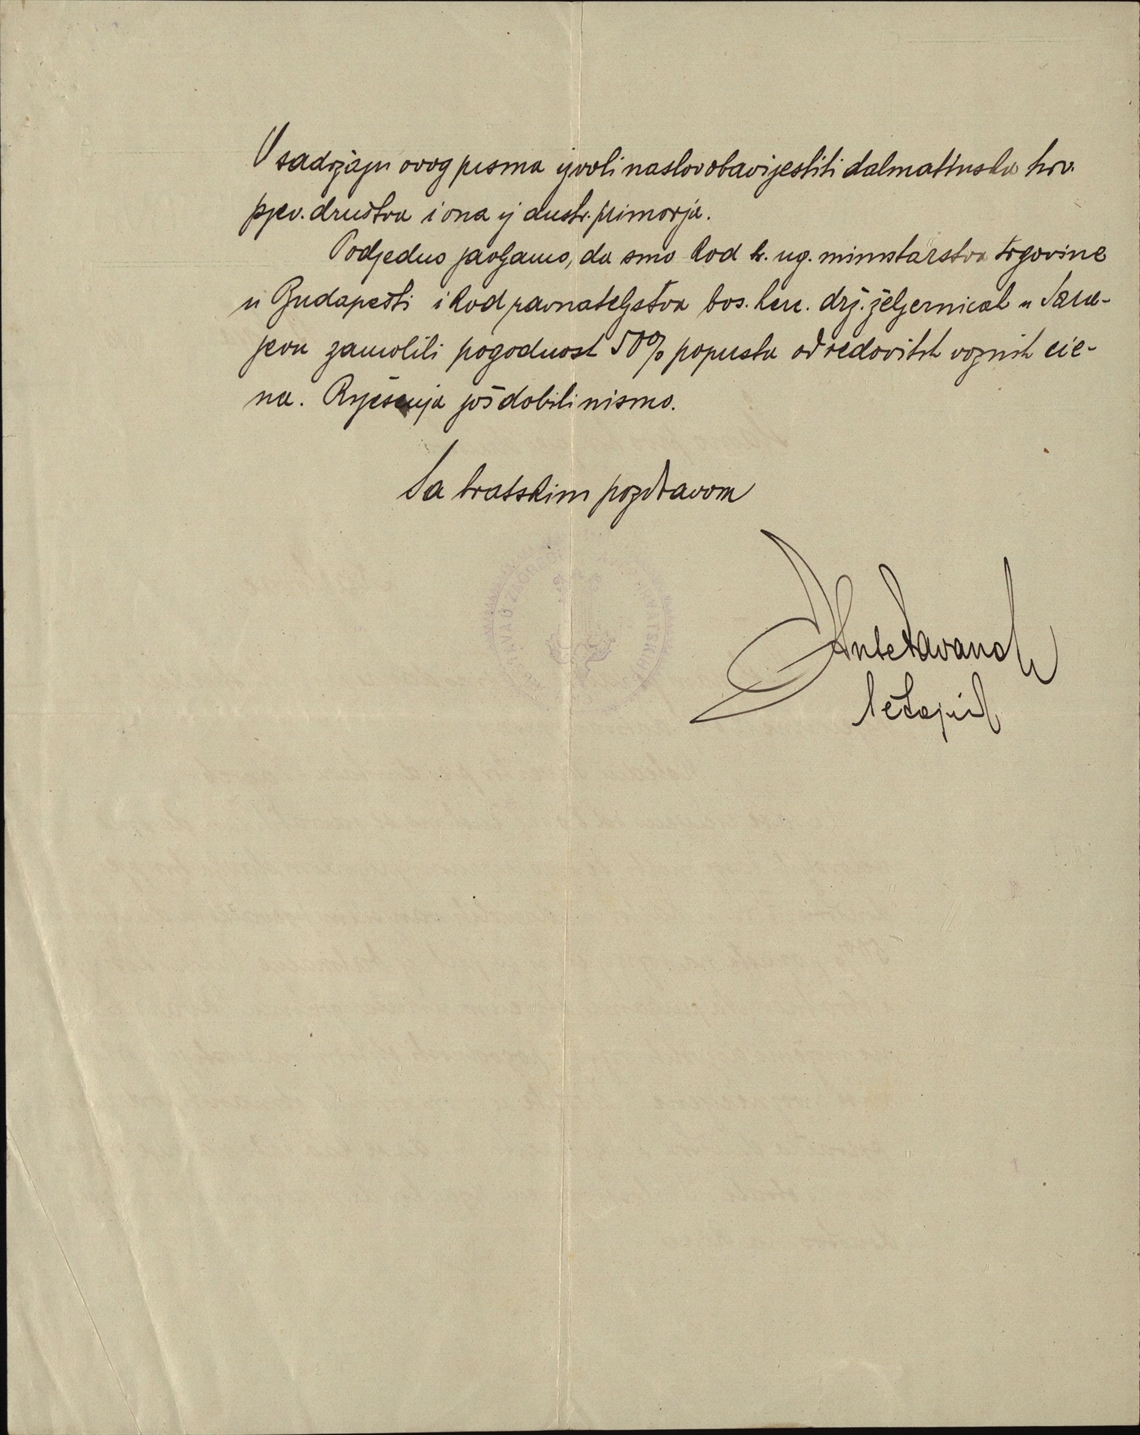 U sadržaju ovog pisma izvoli naslov obavijestiti dalmatinska hrv.
pjev. društva i ona iz austr. primorja.
Podjedno javljamo, da smo kod k. ug. ministarstva trgovine
u Budapešti i kod ravnateljstva bos. herc. drž. željeznicah u Sara-
jevu zamolili pogodnost 50% popusta od redovitih voznih cie-
na. Riješenja još dobili nismo.
Sa bratskim pozdravom